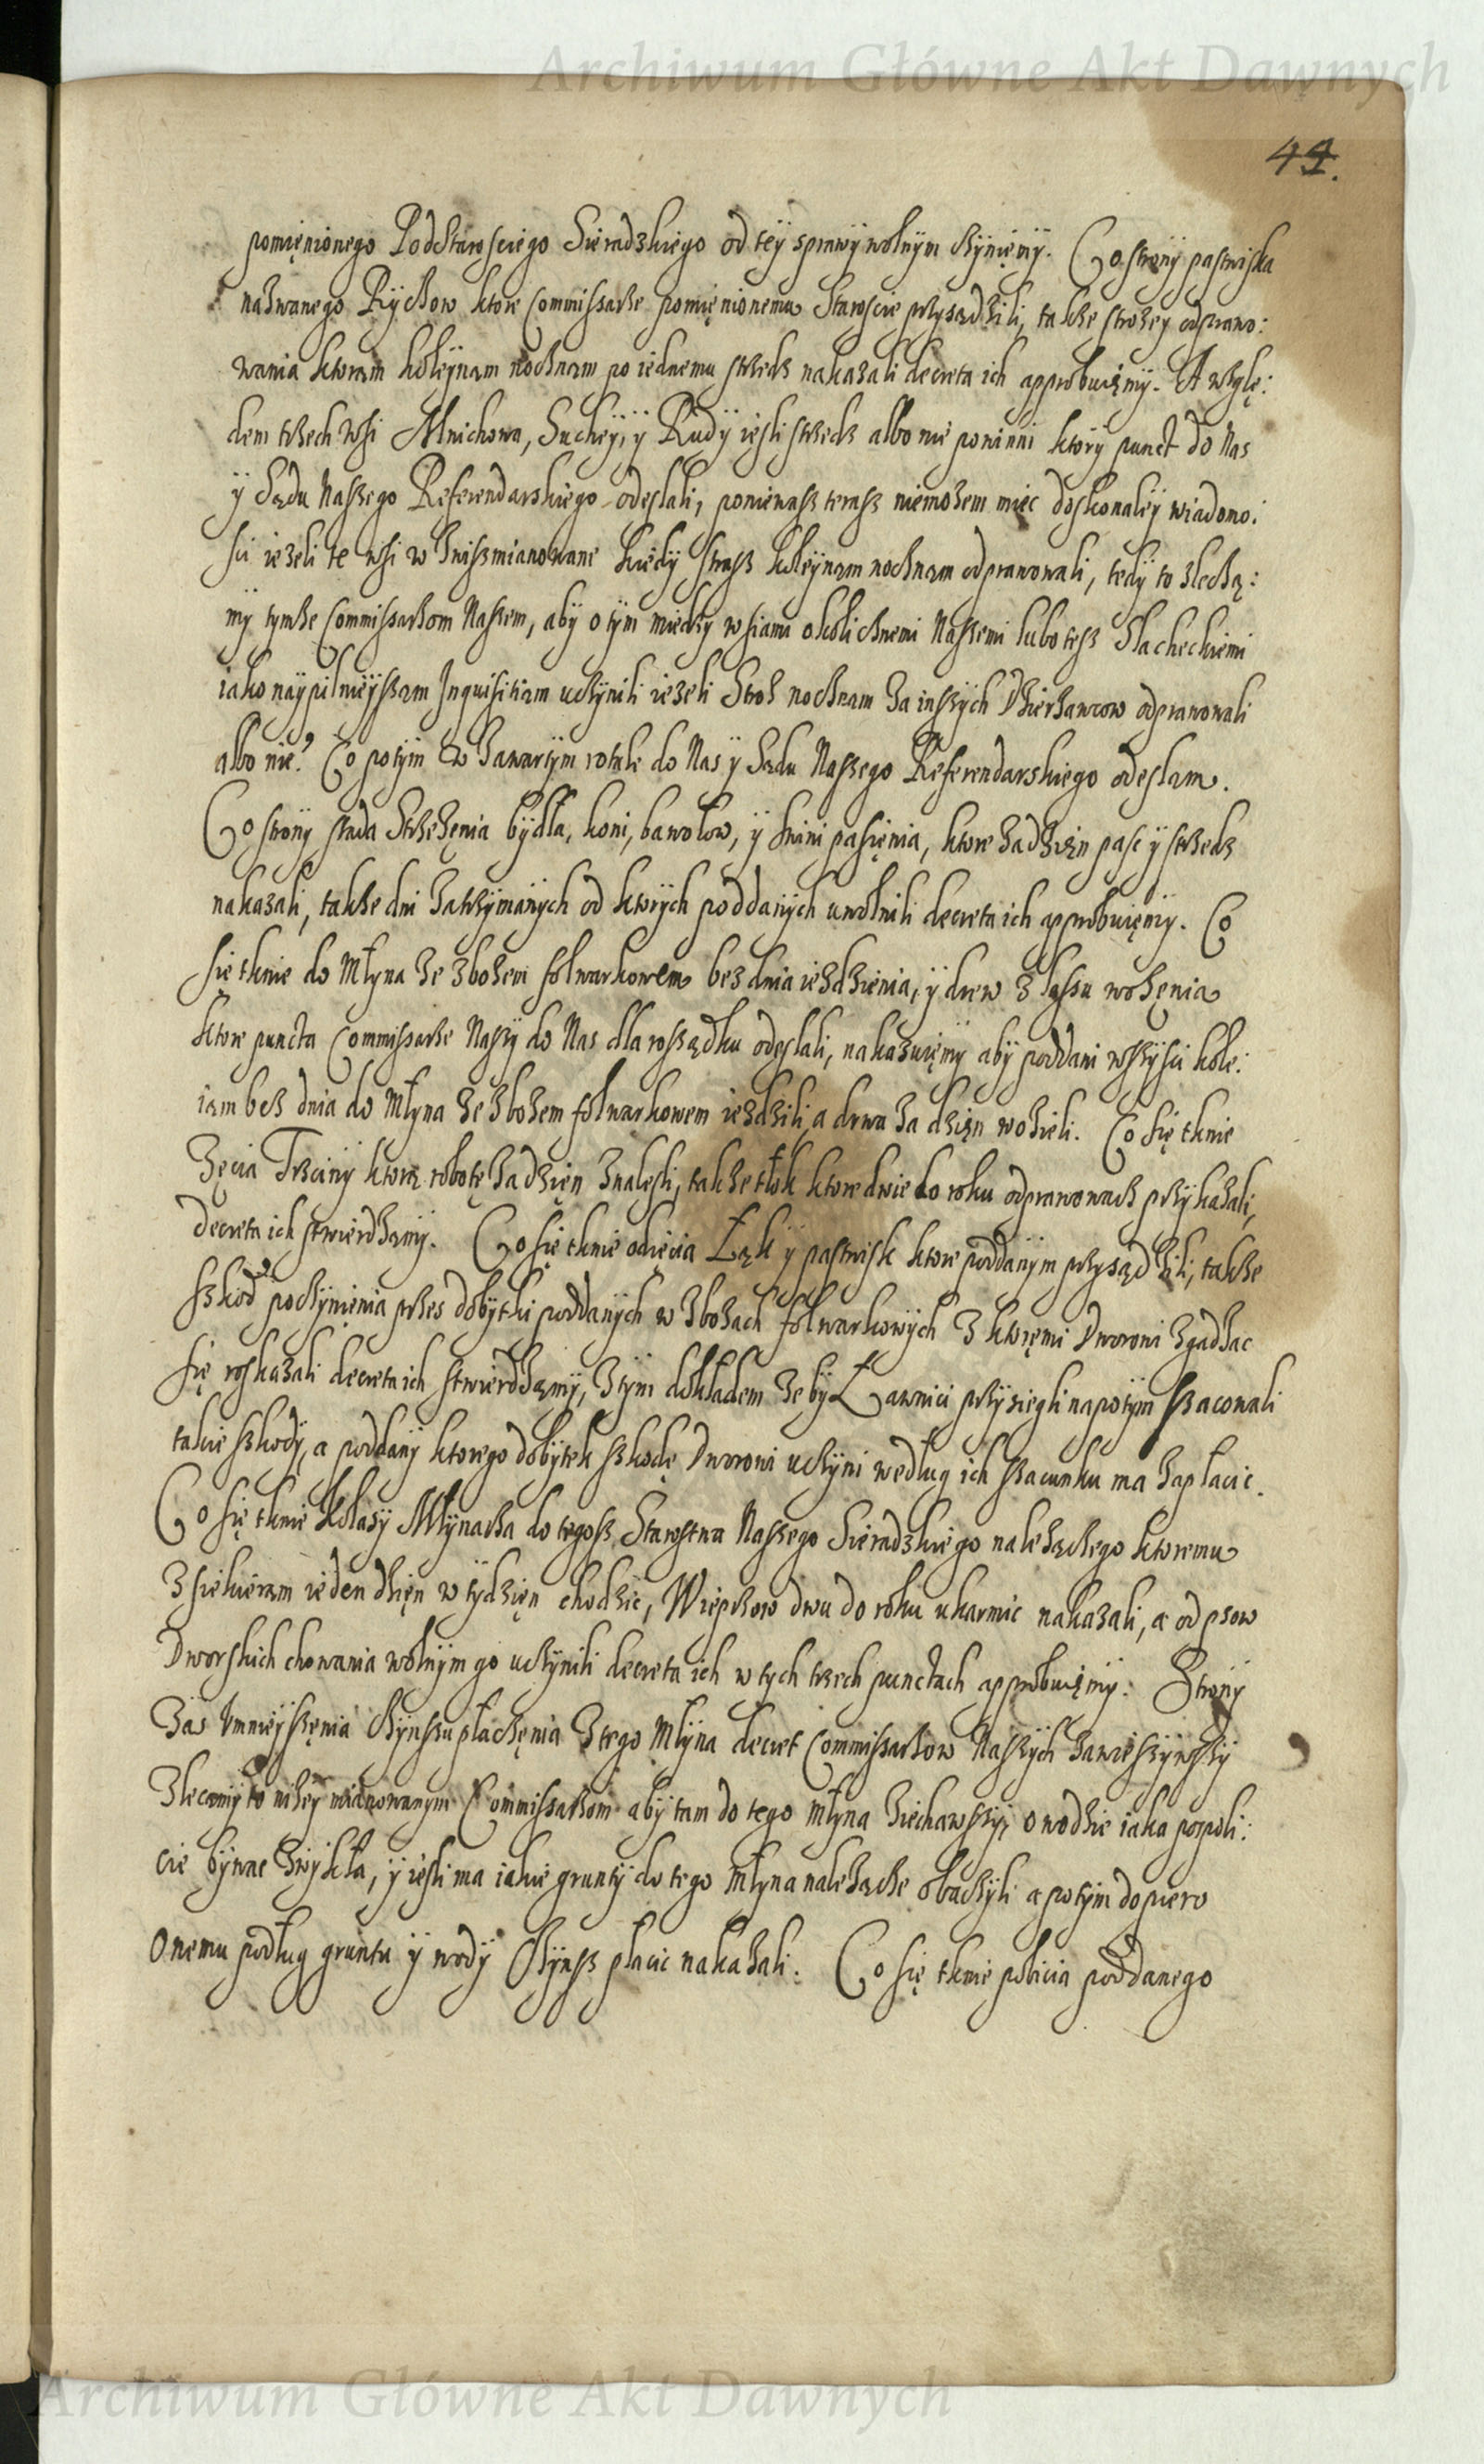 Archiwum Główne Akt Dawnych
44.
pomięnionego Podstarosciego Sieradzkiego od tey sprawy wolnym czyniemy. Co strony pastwiska
nazwanego Rychow ktore Commissarze pomięnionemu Staroscie przysądzili, takze strozey odprawo:
wania ktoram koleynam nocznam po iednemu strzedz nakazali decreta ich approbuięmy. A wzglę:
dem trzech wsi Mnichowa, Suchey, y Rudy iesli strzedz albo nie powinni ktory punct do Nas
y Sądu Naszego Referendarskiego odeslali, poniewasz terasz niemozem miec doskonałey wiadomo:
sci iezeli te wsi w Zwiszmianowane kiedy strasz koleynam nocznam odprawowali, tedy to zleczą:
my tymze Commissarzom Naszem, aby o tym miedzy wsiami okolicznemi Naszemi lubo tesz Slacheckiemi
iako naypilnieyszam Inquisitiam uczynili iezeli Stroz nocznam za inszych Dzierzawcow odprawowali
albo nie? Co potym w Zawartym rotule do Nas y Sądu Naszego Referendarskiego odeslam.
Co strony stada Strzezęnia bydła, koni, bawołow, y swini pasięnia, ktore za dzien pasc y strzedz
nakazali, takze dni Zatrzymanych od ktorych poddanych uwolnili decreta ich approbuięmy. Co
się tknie do Młyna ze zbozem folwarkowem bez dnia iezdzienia, y drew z lassu wozęnia
ktore puncta Commissarze Naszy do Nas dla rossądku odeslali, nakazuięmy aby poddani wszyscy kole:
iam bez dnia do Młyna ze zbozem folwarkowem iezdzili, a drwa za dzien wozieli. Co się tknie
Zęcia Trzciny ktorą robotę za dzięn znalesli, takze tłok ktore dwie do roku odprawowacz przykazali,
decreta ich stwierdzamy. Co się tknie odięcia Łąk y pastwisk ktore poddanym przysądzili, takze
szkod poczynięnia przes dobytki poddanych w zbozach folwarkowych z ktoręmi Dworowi zgadzac
się roskazali decreta ich stwierdzamy, z tym dokładem zeby Ławnici przysiegli napotym szacowali
takie szkody, a poddany ktorego dobytek szkodę Dworowi uczyni według ich szacunku ma zapłacic.
Co się tknie Kolasy Młynarza do tegosz Starostwa Naszego Sieradzkiego nalezączego ktoremu
z siekieram ieden dzięn w tydzięn chodzic, Wieprzow dwu do roku ukarmic nakazali, a od psow
Dworskich chowania wolnym go uczynili decreta ich w tych trzech punctach approbuięmy. Strony
Zas Umnieyszęnia Czynszu płaczęnia z tego Młyna decret Commissarzow Naszych zawiesziwszy
Zlecamy to nizey mianowanym Commissarzom aby tam do tego Młyna ziechawszy, o wodzie iaka pospoli:
cie bywac zwykła, y iesli ma iakie grunty do tego Młyna nalezącze obaczyli a potym dopiero
Onemu podług gruntu y wody Czynsz płacic nakazali. Co się tknie pobicia poddanego
Archiwum Główne Akt Dawnych